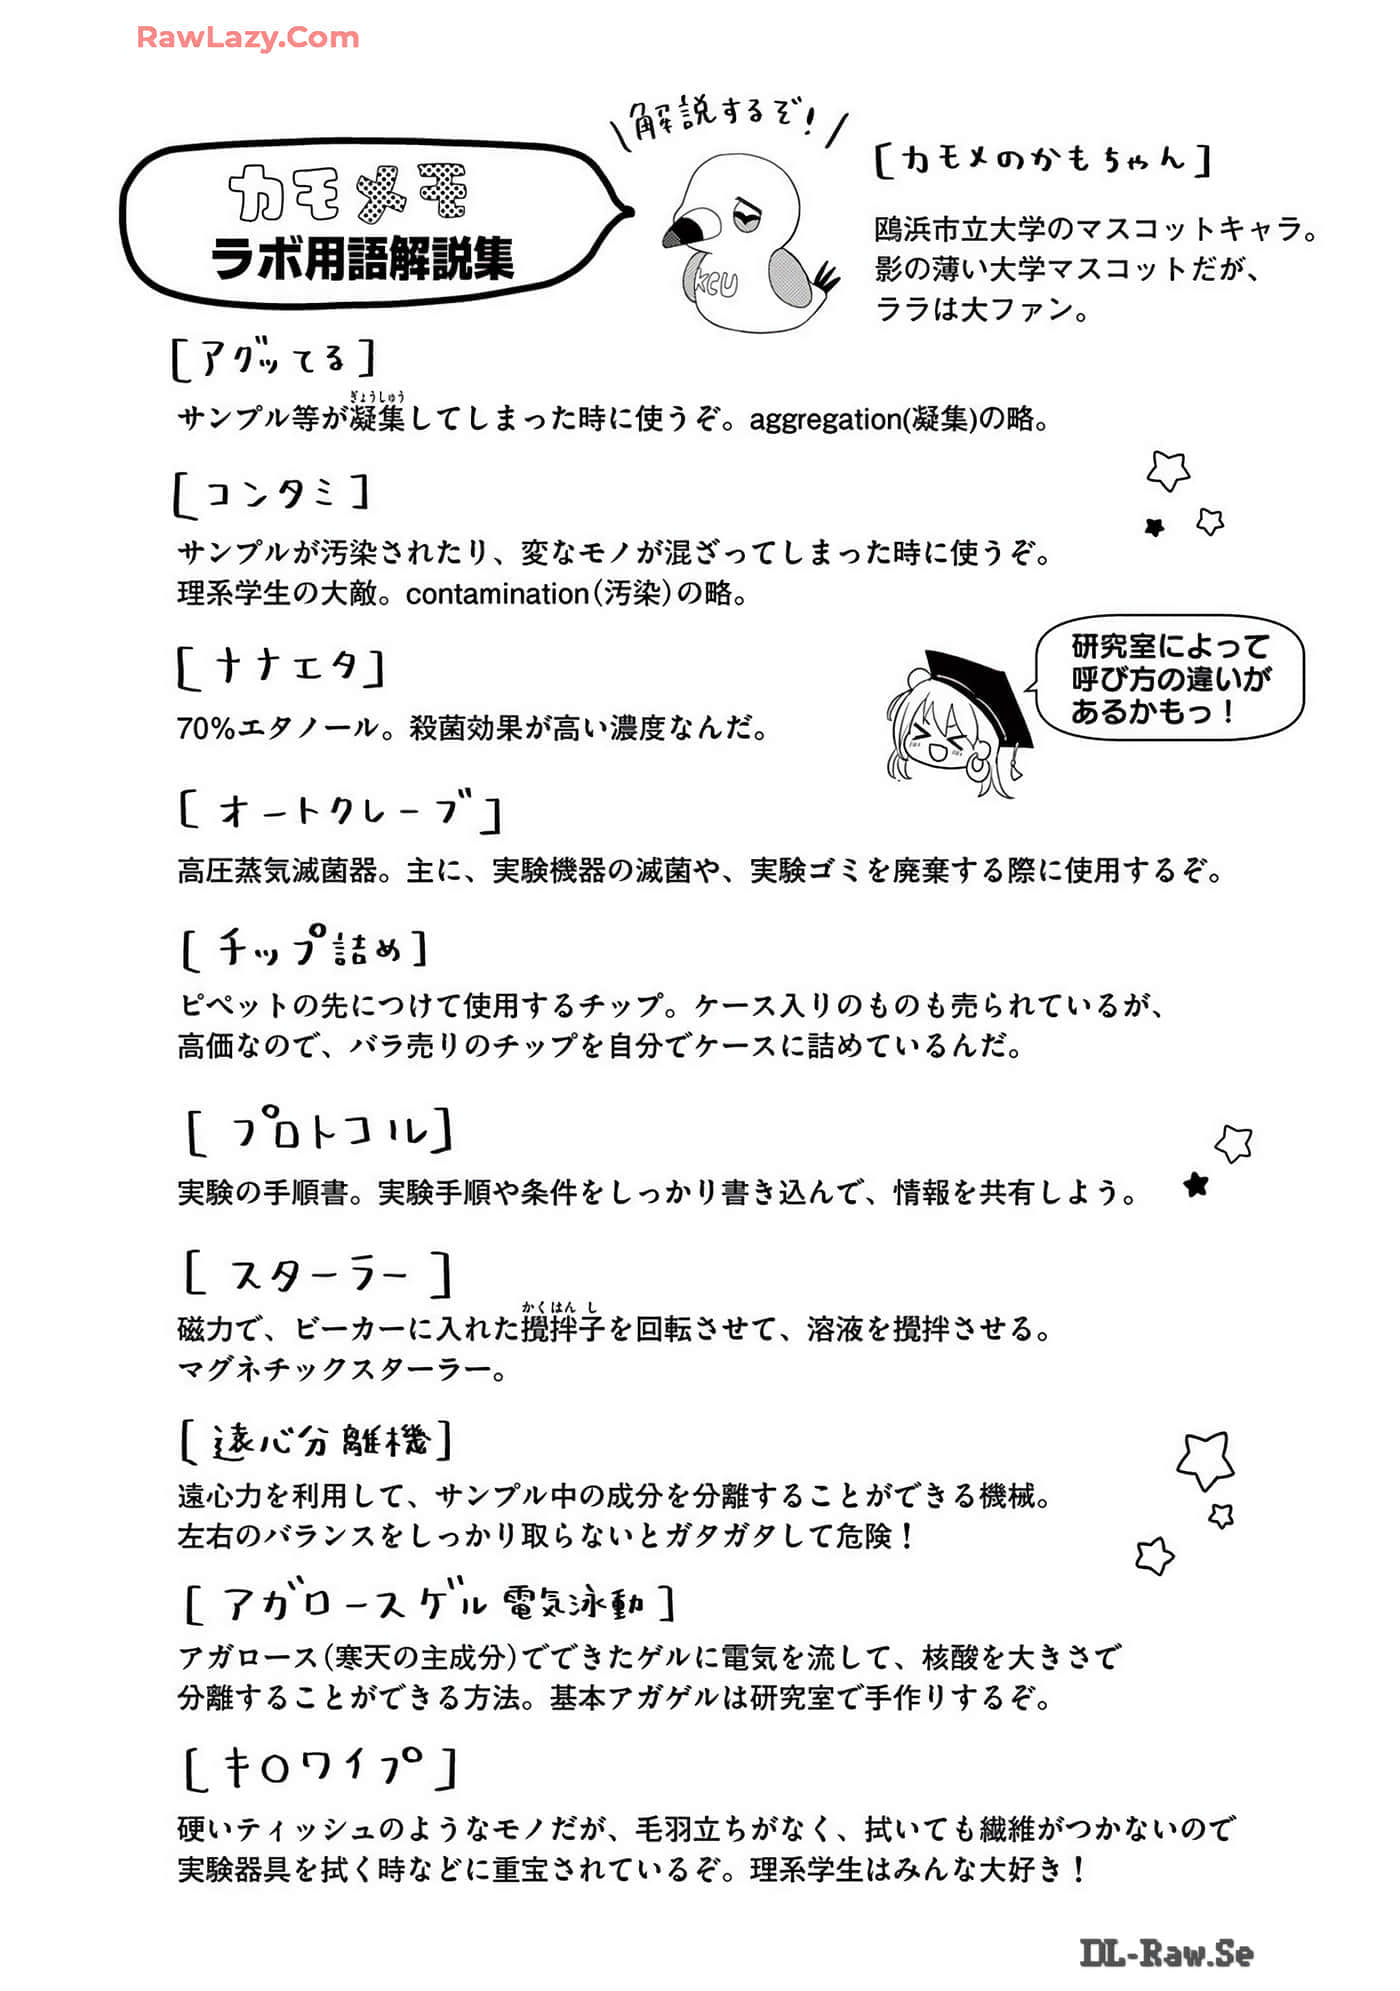 RawLazy.Com
カモメモ
ラボ用語解説集
解説するぞ!
KCU
[カモメのかもちゃん]
鴎浜市立大学のマスコットキャラ。
影の薄い大学マスコットだが、
ララは大ファン。
[アグッてる]
ぎょうしゅう
サンプル等が凝集してしまった時に使うぞ。aggregation(凝集)の略。
[コンタミ]
サンプルが汚染されたり、変なモノが混ざってしまった時に使うぞ。
理系学生の大敵。contamination(汚染)の略。
[ナナエタ]
70%エタノール。殺菌効果が高い濃度なんだ。
研究室によって
呼び方の違いが
あるかもっ!
[オートクレーブ]
高圧蒸気滅菌器。主に、実験機器の滅菌や、実験ゴミを廃棄する際に使用するぞ。
[チップ詰め]
ピペットの先につけて使用するチップ。ケース入りのものも売られているが、
高価なので、バラ売りのチップを自分でケースに詰めているんだ。
[プロトコル]
実験の手順書。実験手順や条件をしっかり書き込んで、情報を共有しよう。
[スターラー]
かくはんし
磁力で、ビーカーに入れた攪拌子を回転させて、溶液を攪拌させる。
マグネチックスターラー。
[遠心分離機]
遠心力を利用して、サンプル中の成分を分離することができる機械。
左右のバランスをしっかり取らないとガタガタして危険!
[アガロースゲル電気泳動]
アガロース(寒天の主成分)でできたゲルに電気を流して、核酸を大きさで
分離することができる方法。基本アガゲルは研究室で手作りするぞ。
[キ〇ワイプ]
硬いティッシュのようなモノだが、毛羽立ちがなく、拭いても繊維がつかないので
実験器具を拭く時などに重宝されているぞ。理系学生はみんな大好き!
DL-Raw.Se